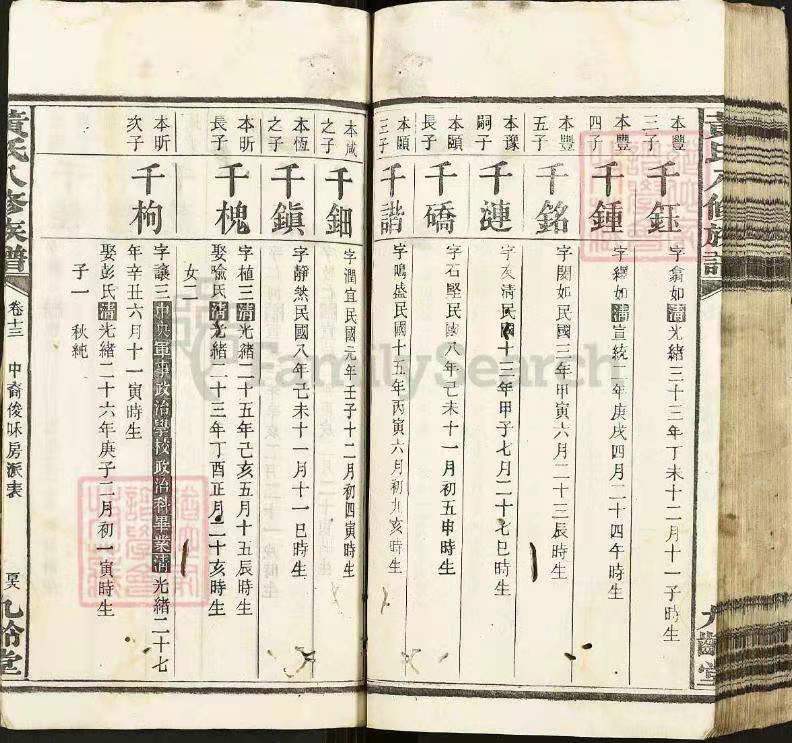 本豐三子
千鈺
字翕如清光緒三十三年丁未十二月十一子時生
本豐四子
千鍾
字繹如清宣統二年庚戌四月二十四午時生
本豐五子
千銘
字閔如民國三年甲寅六月二十三辰時生
本豫嗣子
千漣
字亥清民國十三年甲子七月二十七巳時生
本頤長子
千礄
字石堅民國八年己未十一月初五申時生
本頤三子
千諧
字鳴盛民國十五年丙寅六月初九亥時生
本咸之子
千鈿
字潤宜民國元年壬子十二月初四寅時生
本恆之子
千鎮
字靜然民國八年己未十一月十一巳時生
本昕長子
千槐
字植三清光緒二十五年己亥五月十五辰時生
娶喻氏清光緒二十三年丁酉正月二十亥時生
女二
本昕次子
千枸
字讓三中央軍事政治學校政治科畢業清光緒二十七
年辛丑六月十一寅時生
娶彭氏清光緒二十六年庚子二月初一寅時生
子一 秋純
黃氏八修族譜 卷十三 中裔俊 房派表 九齡堂
黃氏八修族譜 九齡堂
FamilySearch